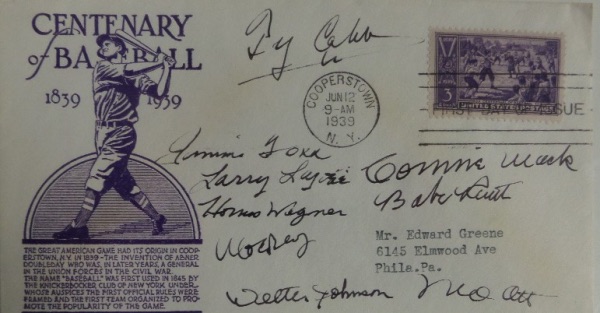 CENTENARY
of BASEBALL
1839 1939
THE GREAT AMERICAN GAME HAD ITS ORIGIN IN COOP-
ERSTOWN, N.Y. IN 1839 - THE INVENTION OF ABNER
DOUBLEDAY WHO WAS, IN LATER YEARS, A GENERAL
IN THE UNION FORCES IN THE CIVIL WAR.
THE NAME "BASEBALL" WAS FIRST USED IN 1845 BY
THE KNICKERBOCKER CLUB OF NEW YORK UNDER
WHOSE AUSPICES THE FIRST OFFICIAL RULES WERE
FRAMED AND THE FIRST TEAM ORGANIZED TO PRO-
MOTE THE POPULARITY OF THE GAME.
Ty Cobb
COOPERSTOWN
JUN 12
9-AM
1939
N. Y.
3
UNITED STATES POSTAGE
FIRST DAY ISSUE
Jimmie Foxx
Connie Mack
Larry Lajoie
Babe Ruth
Honus Wagner
Mr. Edward Greene
6145 Elmwood Ave
Phila. Pa.
Walter Johnson
Mel Ott